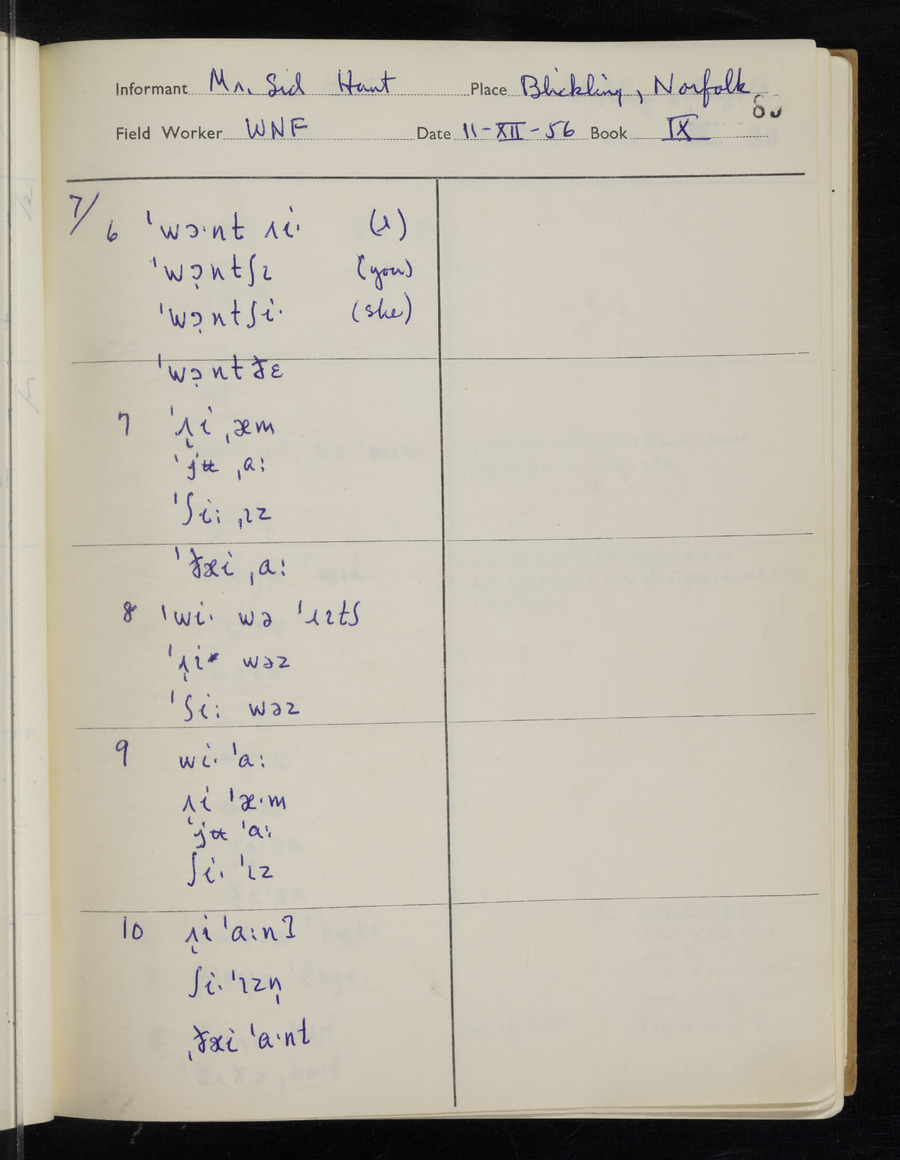 Informant Mr. Sid Hant Place Blickling, Norfolk
Field Worker WNF Date 11-XII-56 Book IX
7/
6 ˈwɔ·nt ʌi· (I)
ˈwɔ̣ntʃɪ (you)
ˈwɔ̣ntʃi· (she)
ˈwɔ̣nt ðɛ
7 ˈʌ̣i ˌæm
ˈjʉ ˌa:
ˈʃi: ˌɪz
ˈðæi ˌa:
8 ˈwi· wə ˈɹɪtʃ
ˈʌ̣i wəz
ˈʃi: wəz
9 wi· ˈa:
ʌi ˈæ·m
ˈjʉ ˈa:
ʃi· ˈɪz
10 ʌ̣i ˈa:nʔ
ʃi· ˈɪzn̩
ˌðæi ˈa·nt